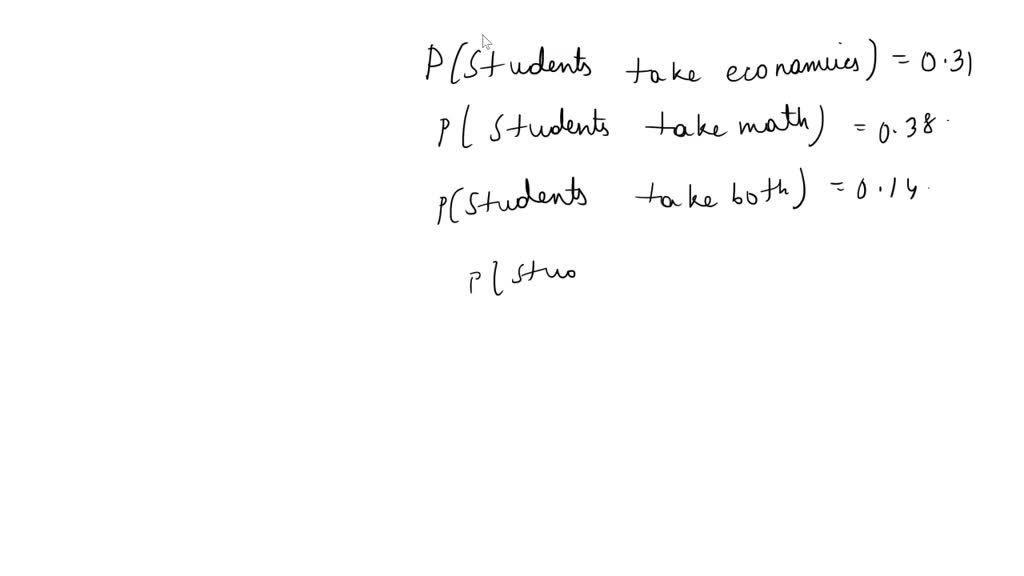 P(Students take economics) = 0.31
P(Students take math) = 0.38.
P(Students take both) = 0.14.
P(stuo